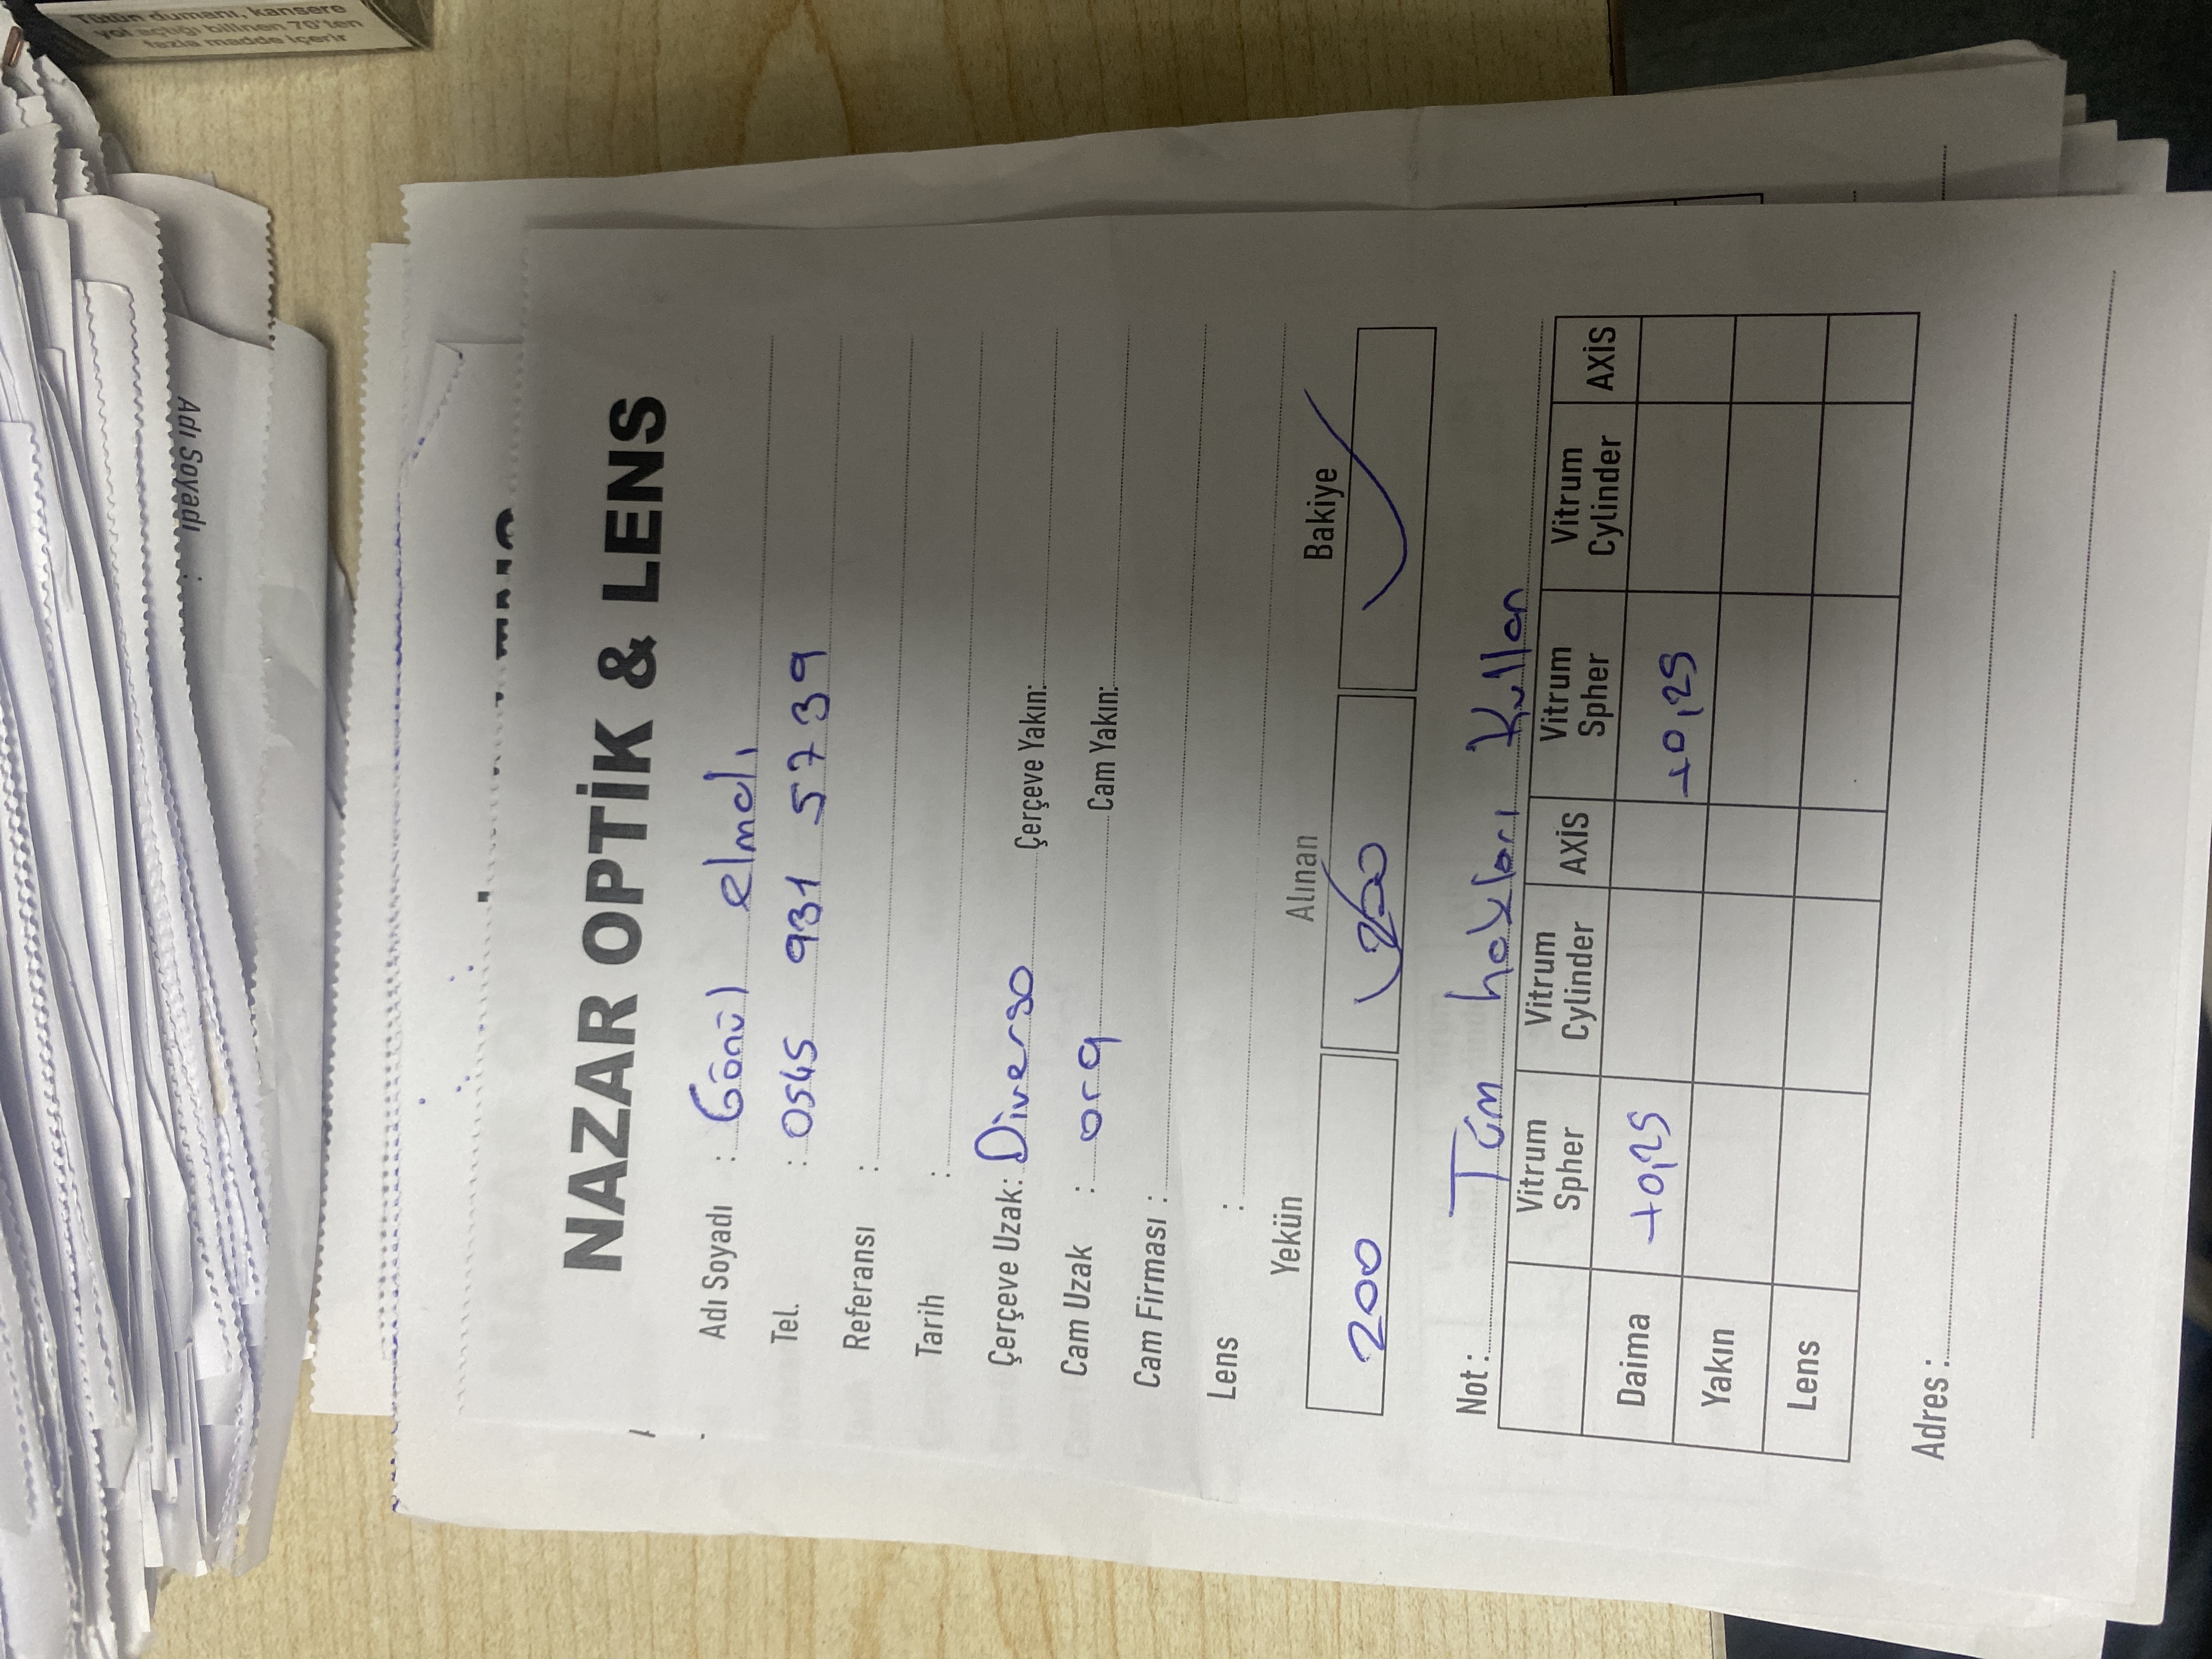 Adı Soyadı :
Tütün dumanı, kansere
yol açtığı bilinen 70'ten
fazla madde içerir
NAZAR OPTİK & LENS
Adı Soyadı : Gönül elmalı
Tel. : 0545 931 5739
Referansı :
Tarih :
Çerçeve Uzak: Diverso Çerçeve Yakın:
Cam Uzak : org Cam Yakın:
Cam Firması :
Lens :
Yekün Alınan Bakiye
200 200
Not : Tüm hakları Kullan
Vitrum Spher Vitrum Cylinder AXİS Vitrum Spher Vitrum Cylinder AXİS
Daima +0,25 +0,25
Yakın
Lens
Adres :